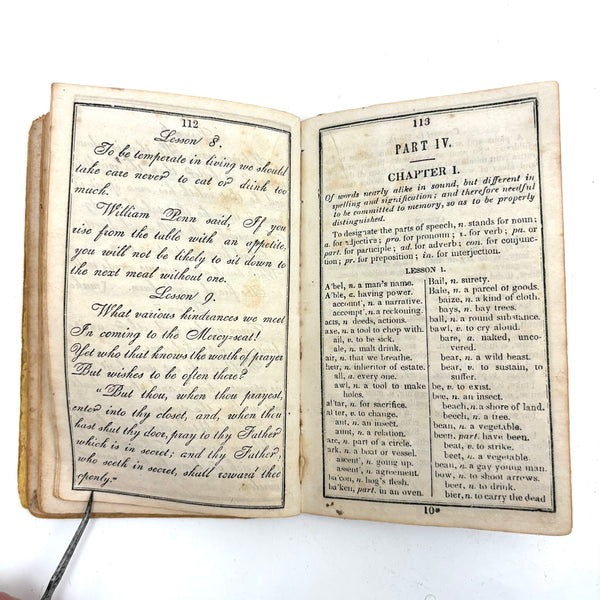 112
Lesson 8.
To be temperate in living we should
take care never to eat or drink too
much.
William Penn said, If you
rise from the table with an appetite,
you will not be likely to sit down to
the next meal without one.
Lesson 9.
What various hindrances we meet
In coming to the Mercy-seat!
Yet who that knows the worth of prayer
But wishes to be often there?
"But thou, when thou prayest,
enter into thy closet, and, when thou
hast shut thy door, pray to thy Father
which is in secret; and thy Father,
who seeth in secret, shall reward thee
openly."
113
PART IV.
CHAPTER I.
Of words nearly alike in sound, but different in
spelling and signification; and therefore needful
to be committed to memory, so as to be properly
distinguished.
To designate the parts of speech, n. stands for noun;
a. for adjective; pro. for pronoun; v. for verb; pa. or
part. for participle; ad. for adverb; con. for conjunc-
tion; pr. for preposition; in. for interjection.
LESSON 1.
A'bel, n. a man's name.
A'ble, a. having power.
account', n. a narrative.
accompt', n. a reckoning.
acts, n. deeds, actions.
axe, n. a tool to chop with.
ail, v. to be sick.
ale, n. malt drink.
air, n. that we breathe.
heir, n. inheritor of estate.
all, a. every one.
awl, n. a tool to make
holes.
al'tar, n. for sacrifice.
al'ter, v. to change.
ant, n. an insect.
aunt, n. a relation.
arc, n. part of a circle.
ark, n. a boat or vessel.
ascent', n. going up.
assent', n. agreement.
ba'con, n. hog's flesh.
ba'ken, part. in an oven.
Bail, n. surety.
Bale, n. a parcel of goods.
baize, n. a kind of cloth.
bays, n. bay trees.
ball, n. a round substance.
bawl, v. to cry aloud.
bare, a. naked, unco-
vered.
bear, n. a wild beast.
bear, v. to sustain, to
suffer.
be, v. to exist.
bee, n. an insect.
beach, n. a shore of land.
beech, n. a tree.
bean, n. a vegetable.
been, part. have been.
beat, v. to strike.
beet, n. a vegetable.
beau, n. a gay young man.
bow, n. to shoot arrows.
beer, n. to drink.
bier, n. to carry the dead
10*